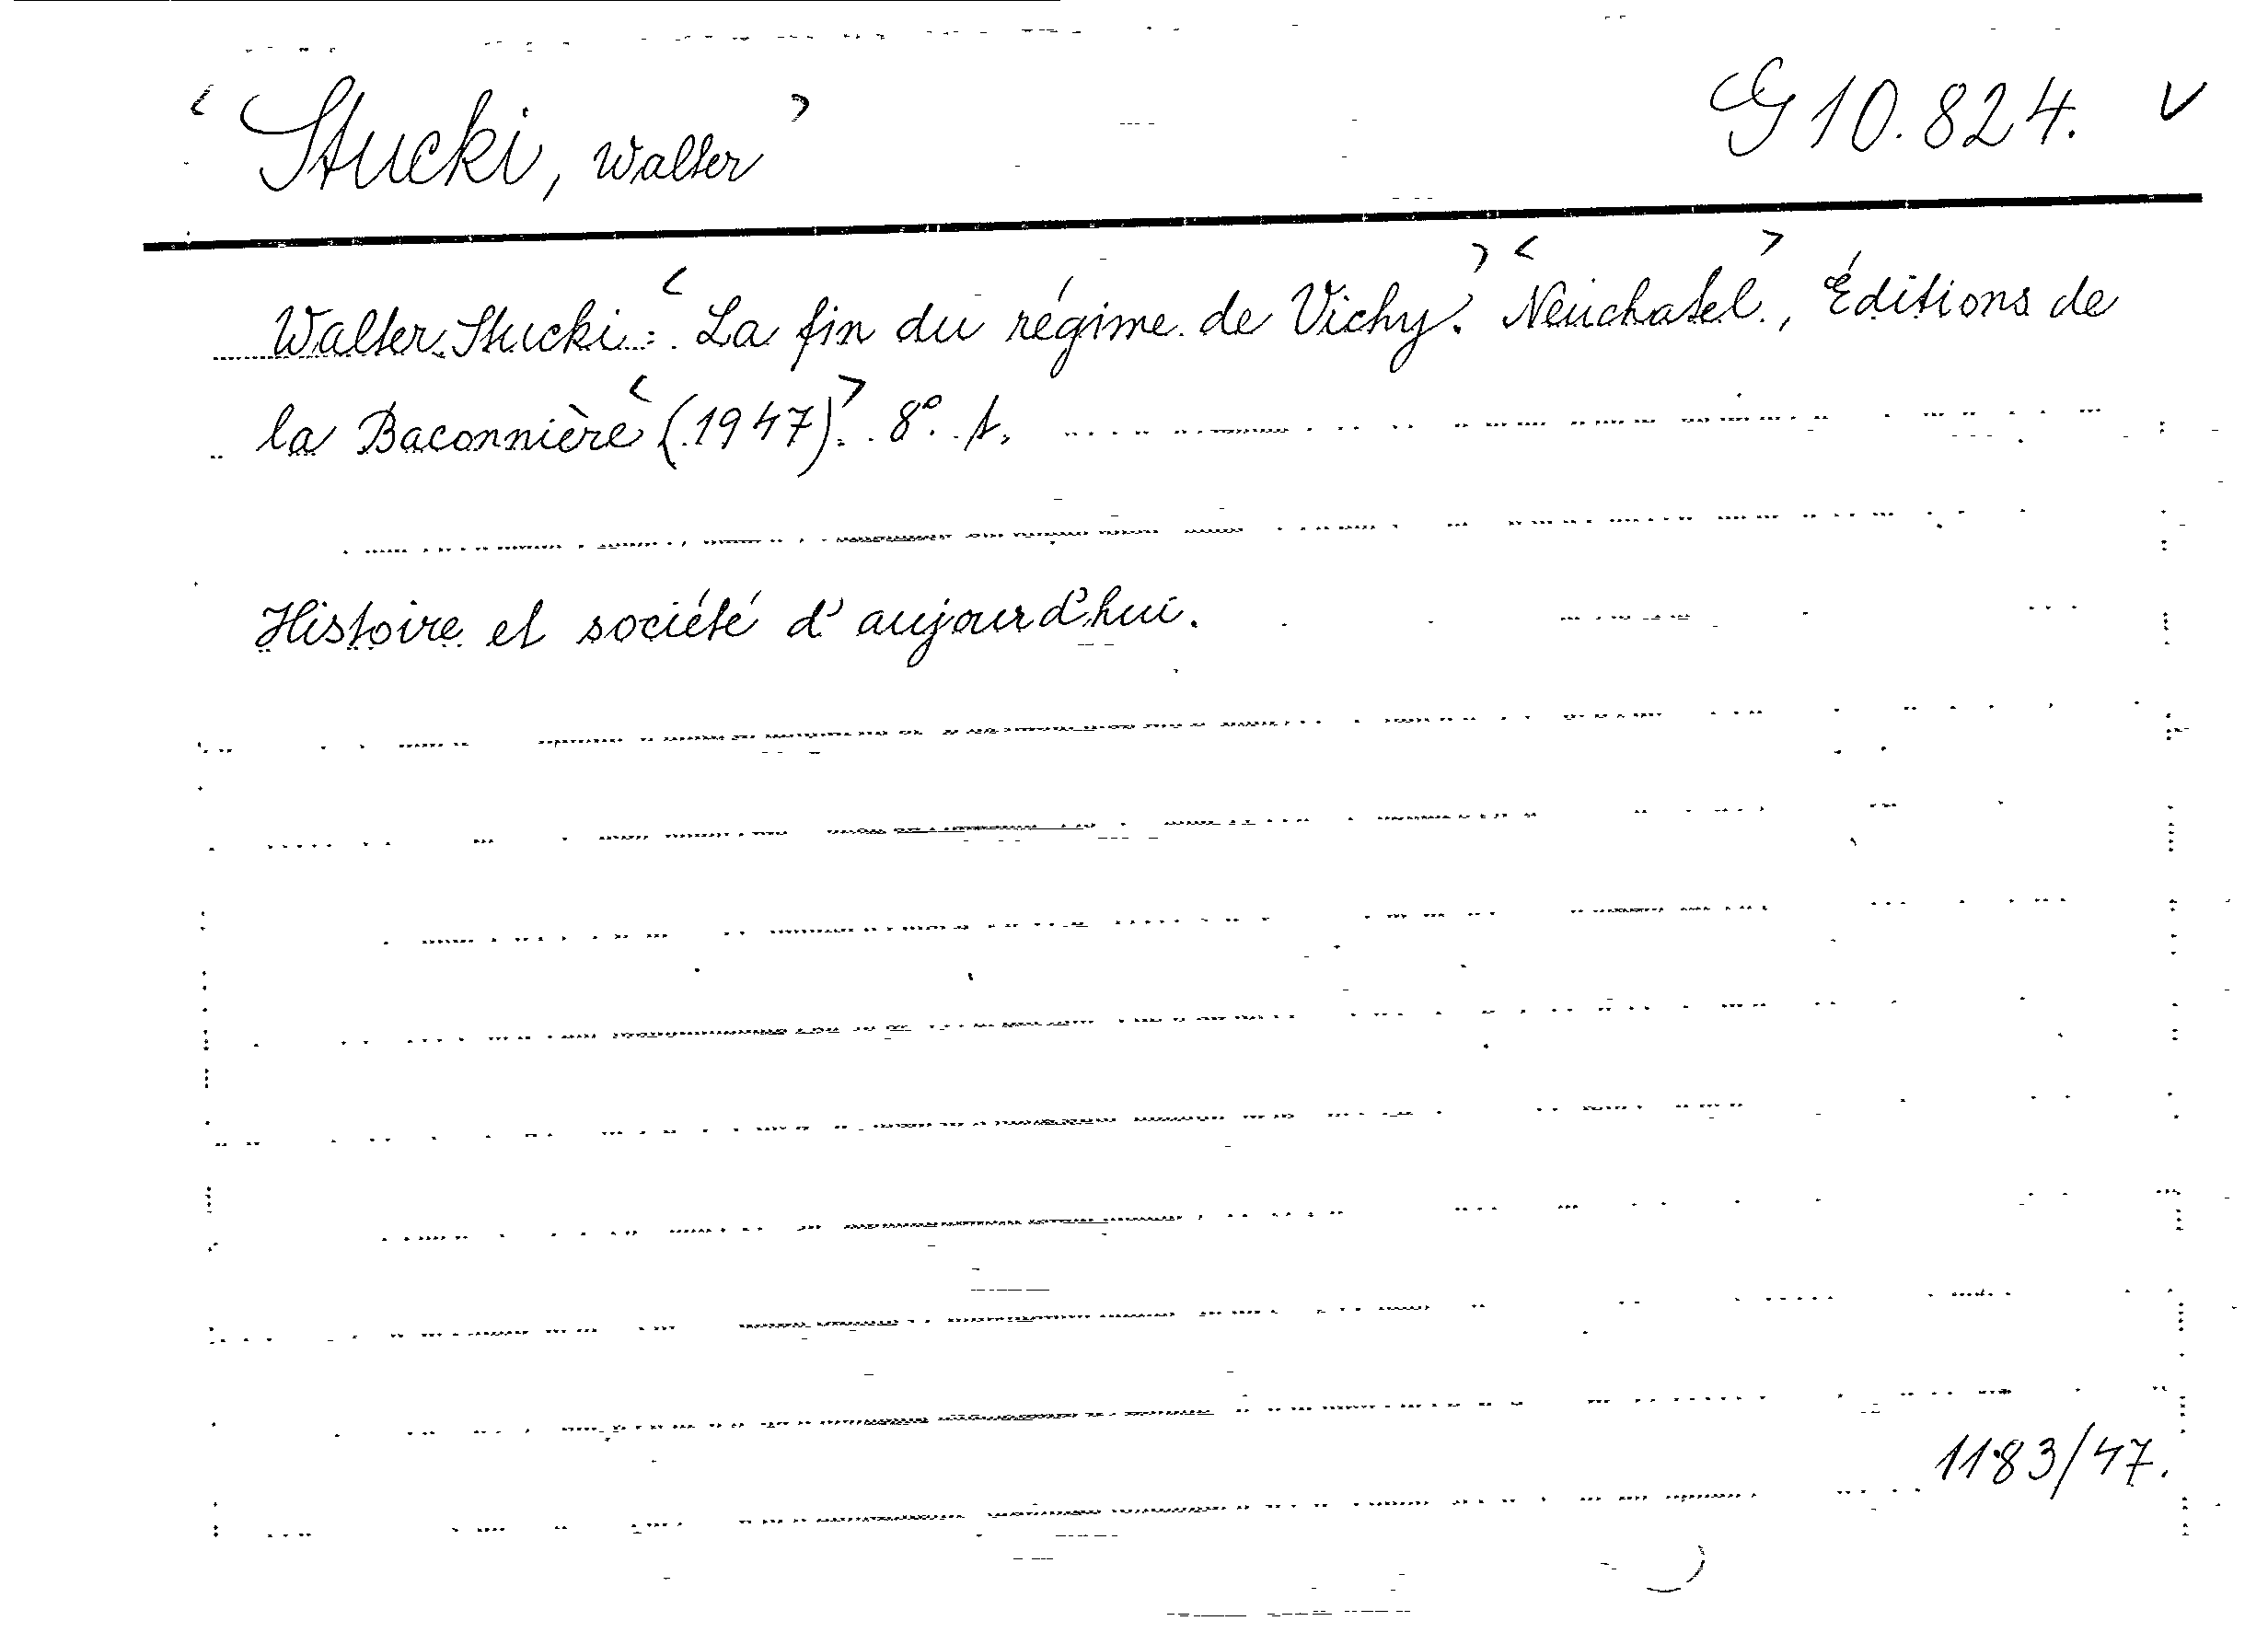 ‹ Stucki, Walter › G 10.824. v
Walter Stucki: ‹ La fin du régime de Vichy. › ‹ Neuchatel ›, Éditions de
la Baconnière ‹ (1947) ›. 8°.
Histoire et société d'aujourd'hui.
1183/47.